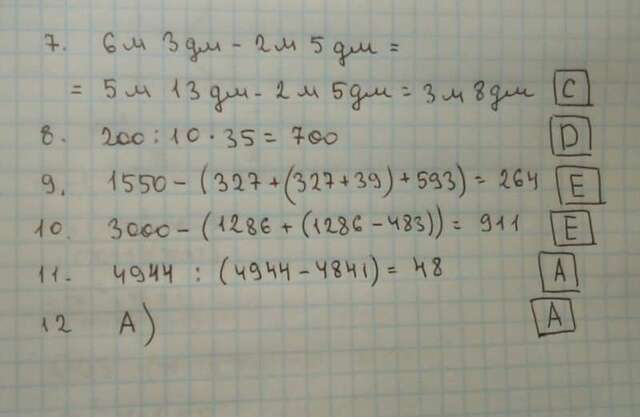 7. 6м 3дм - 2м 5дм =
= 5м 13дм - 2м 5дм = 3м 8дм C
8. 200 : 10 · 35 = 700 D
9. 1550 - (327 + (327 + 39) + 593) = 264 E
10. 3000 - (1286 + (1286 - 483)) = 911 E
11. 4944 : (4944 - 4841) = 48 A
12 A) A